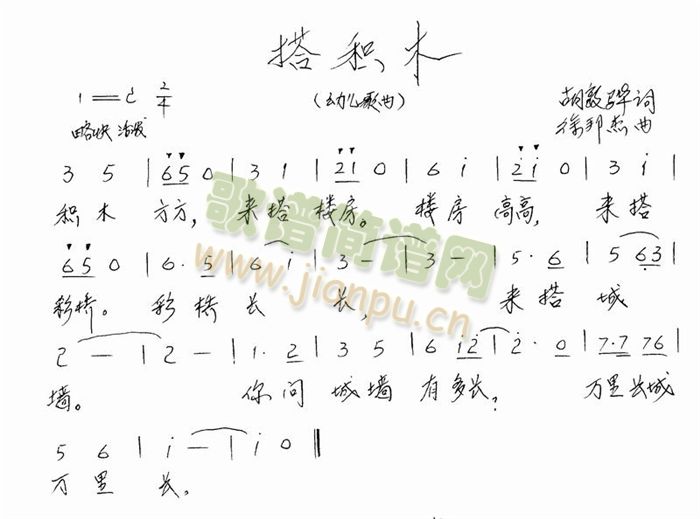 搭积木
(幼儿歌曲)
1=C 2/4
胡敦骅词
略快 活泼
徐邦杰曲
3 5 | 6 5 0 | 3 1 | 2 1 0 | 6 i | 2 i 0 | 3 i |
积木 方方, 来搭 楼房。 楼房 高高, 来搭
6 5 0 | 6· 5 | 6 i | 3 - | 3 - | 5· 6 | 5 6 3 |
彩桥。 彩桥 长 长, 来搭 城
2 - | 2 - | 1· 2 | 3 5 | 6 i 2 | 2· 0 | 7·7 7 6 |
墙。 你问 城墙 有多长? 万里长城
5 6 | i - | i 0 ‖
万里 长。
歌谱简谱网
www.jianpu.cn